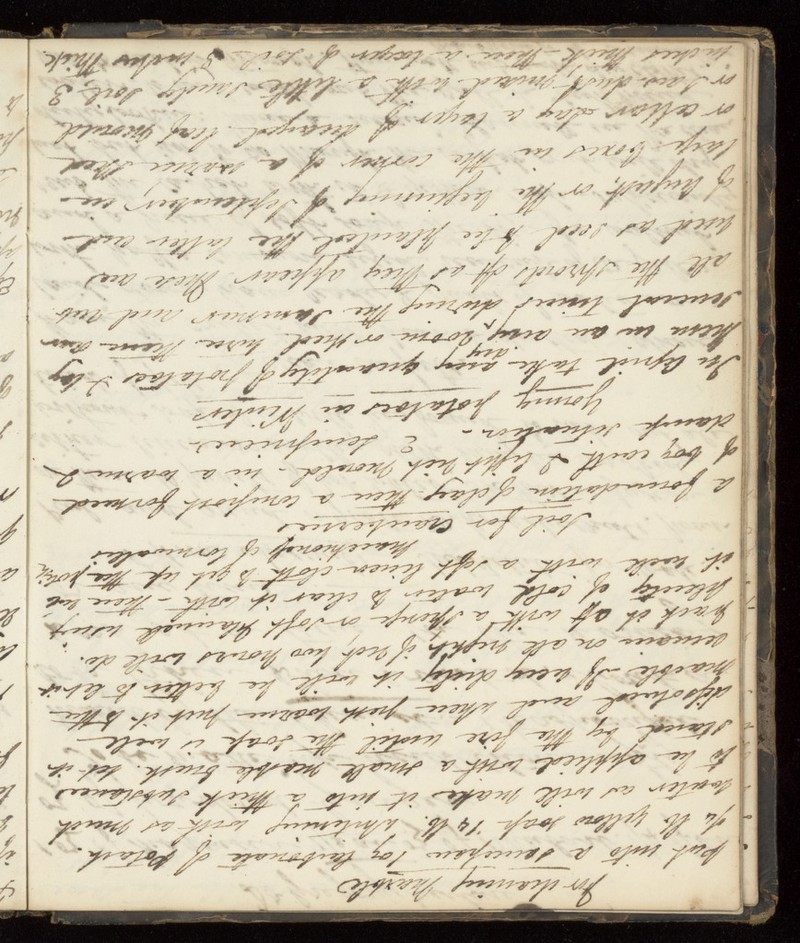 For cleaning Marble
Put into a saucepan 1 oz Carbonate of Potash.
1/4 lb yellow soap 1/4 lb Whitening with as much
water as will make it into a thick substance
to be applied with a small marble brush. let it
stand by the fire until the soap is well
dissolved and when just warm put it to the
marble If very dirty it will be better to let it
remain on all night if not two hours will do.
wash it off with a sponge or soft flannel using
plenty of cold water to clear it with - then rub
it well with a soft linen cloth to get up the
of Cornwallis
Soil for Cranberries
a foundation of clay then a compost formed
of bog earth & light rich mould - in a warm &
damp situation -
Young potatoes in Winter
In April take any quantity of potatoes & lay
them in an airy room or shed turn them over
several times during the Summer and rub
all the sprouts off as they appear these are
used as seed to be planted the latter end
of August, or the beginning of September in
large boxes in the corner of a warm shed
or cellar Lay a layer of decayed leaf mould
or saw dust, mixed with a little sandy soil 3
inches thick - then a layer of soil 3 inches thick